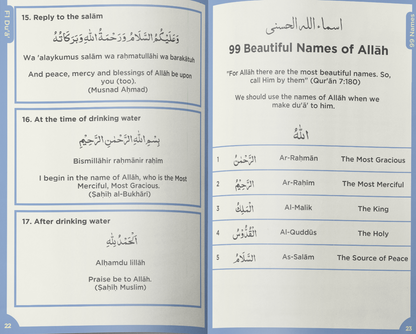 Fi Du'ā'
15. Reply to the salām
وَعَلَيْكُمُ السَّلَامُ وَرَحْمَةُ اللهِ وَبَرَكَاتُهُ
Wa 'alaykumus salām wa rahmatullāhi wa barakātuh
And peace, mercy and blessings of Allāh be upon
you (too).
(Musnad Ahmad)
16. At the time of drinking water
بِسْمِ اللهِ الرَّحْمٰنِ الرَّحِيْمِ
Bismillāhir rahmānir rahīm
I begin in the name of Allāh, who is the Most
Merciful, Most Gracious.
(Ṣaḥīḥ al-Bukhārī)
17. After drinking water
اَلْحَمْدُ لِلّٰهِ
Alhamdu lillāh
Praise be to Allāh.
(Ṣaḥīḥ Muslim)
22
99 Names
اسماء الله الحسنى
99 Beautiful Names of Allāh
"For Allāh there are the most beautiful names. So,
call Him by them" (Qur'ān 7:180)
We should use the names of Allāh when we
make du'ā' to him.
اَللّٰهُ
1 اَلرَّحْمٰنُ Ar-Raḥmān The Most Gracious
2 اَلرَّحِيْمُ Ar-Raḥīm The Most Merciful
3 اَلْمَلِكُ Al-Malik The King
4 اَلْقُدُّوْسُ Al-Quddūs The Holy
5 اَلسَّلَامُ As-Salām The Source of Peace